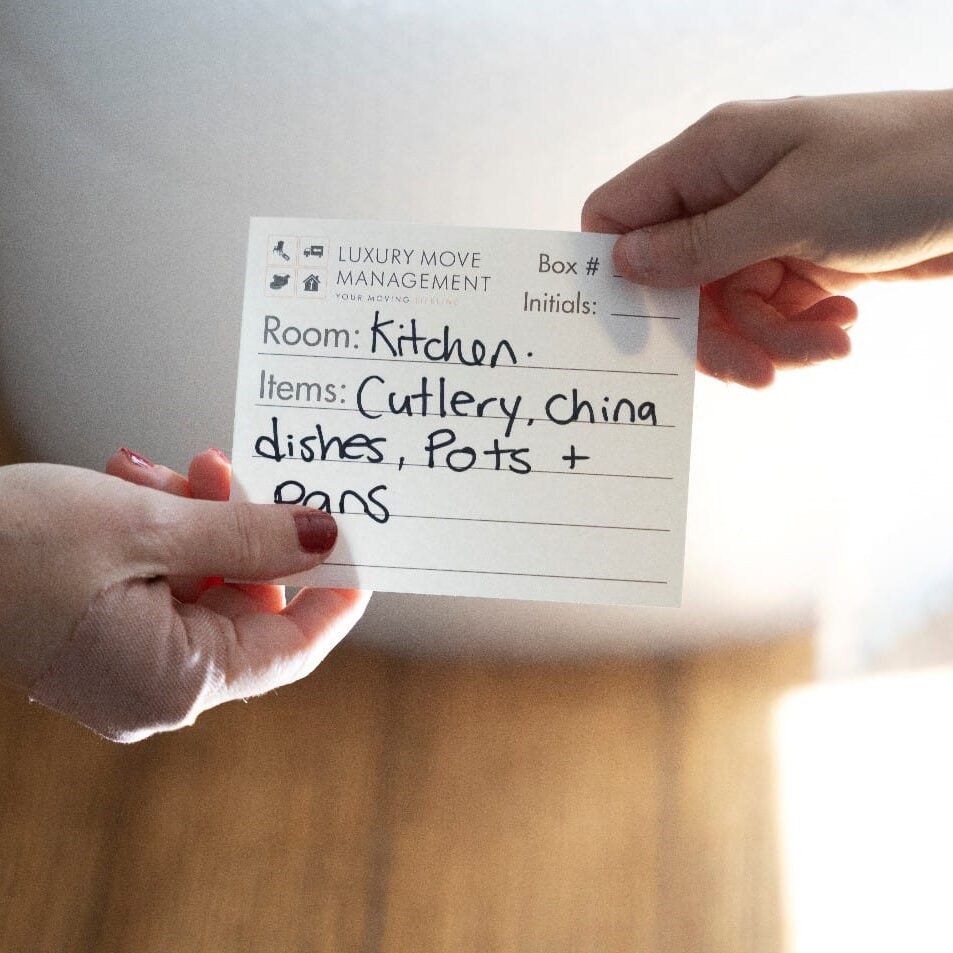 LUXURY MOVE
MANAGEMENT
YOUR MOVING LIFELINE
Box #
Initials:
Room: Kitchen.
Items: Cutlery, China
dishes, Pots +
Pans